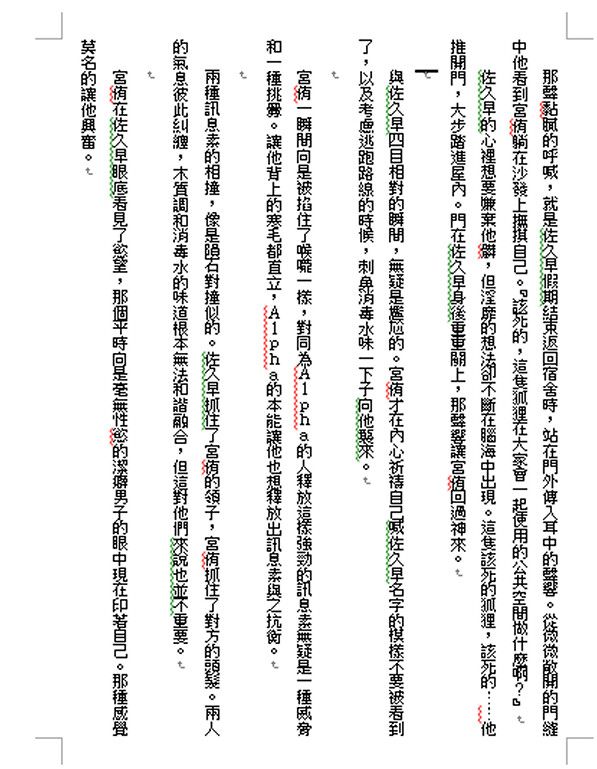 那聲黏膩的呼喊，就是佐久早假期結束返回宿舍時，站在門外傳入耳中的聲響。從微微敞開的門縫
中他看到宮侑躺在沙發上撫摸自己。『該死的，這隻狐狸在大家會一起使用的公共空間做什麼啊？』
佐久早的心裡想要嫌棄他髒，但淫靡的想法卻不斷在腦海中出現。這隻該死的狐狸，該死的……他
推開門，大步踏進屋內。門在佐久早身後重重關上，那聲響讓宮侑回過神來。
與佐久早四目相對的瞬間，無疑是尷尬的。宮侑才在內心祈禱自己喊佐久早名字的模樣不要被看到
了，以及考慮逃跑路線的時候，刺鼻消毒水味一下子向他襲來。
宮侑一瞬間向是被掐住了喉嚨一樣，對同為Alpha的人釋放這樣強勁的訊息素無疑是一種威脅
和一種挑釁。讓他背上的寒毛都直立，Alpha的本能讓他也想釋放出訊息素與之抗衡。
兩種訊息素的相撞，像是隕石對撞似的。佐久早抓住了宮侑的領子，宮侑抓住了對方的頭髮。兩人
的氣息彼此糾纏，木質調和消毒水的味道根本無法和諧融合，但這對他們來說也並不重要。
宮侑在佐久早眼底看見了慾望，那個平時向是毫無性慾的潔癖男子的眼中現在印著自己。那種感覺
莫名的讓他興奮。